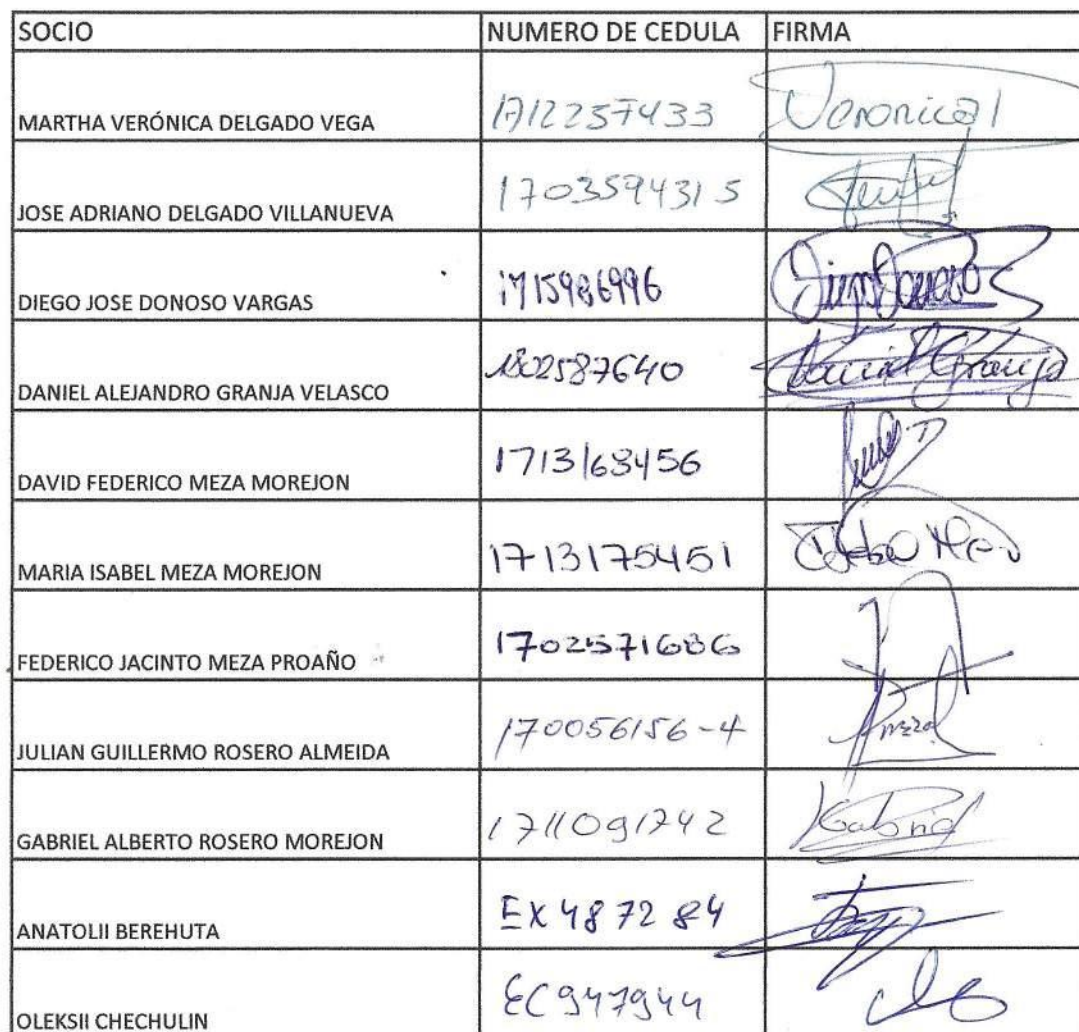 SOCIO NUMERO DE CEDULA FIRMA
MARTHA VERÓNICA DELGADO VEGA 1712257433 Veronica
JOSE ADRIANO DELGADO VILLANUEVA 1703594315
DIEGO JOSE DONOSO VARGAS 1715986996 Diego Donoso
DANIEL ALEJANDRO GRANJA VELASCO 1802587640 Daniel Granja
DAVID FEDERICO MEZA MOREJON 1713168456
MARIA ISABEL MEZA MOREJON 1713175451
FEDERICO JACINTO MEZA PROAÑO 1702571686
JULIAN GUILLERMO ROSERO ALMEIDA 170056156-4
GABRIEL ALBERTO ROSERO MOREJON 1711091742 Gabriel
ANATOLII BEREHUTA EX 48 72 84
OLEKSII CHECHULIN EC947944